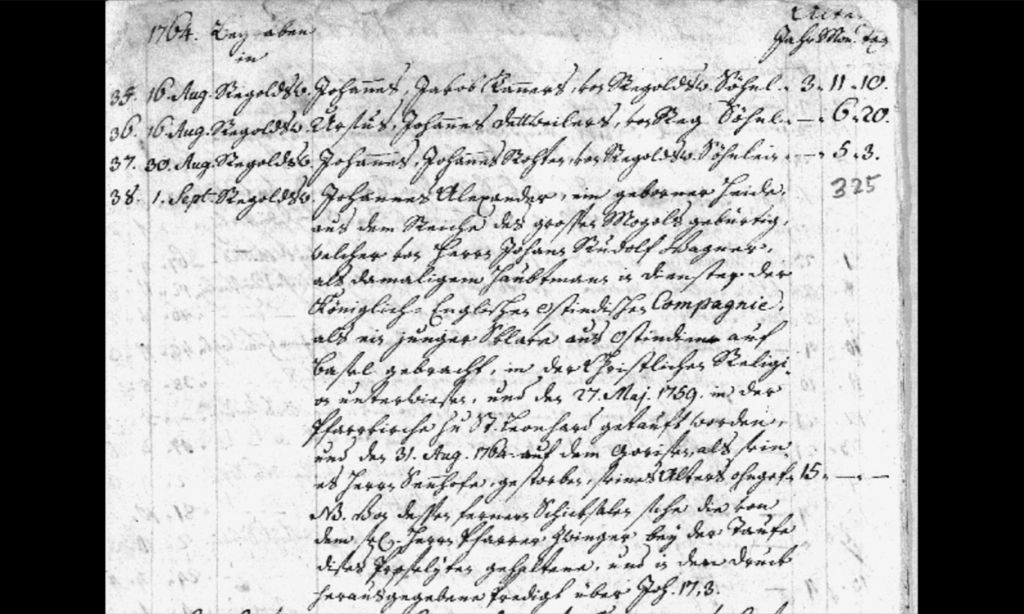 1764. Begraben in
Alter
Jahr. Mon. Tag
35. 16. Aug. Regoldsw. Johannes, Jakob Tanners, von Regoldsw. Söhnl. - 3 - 11 - 10.
36. 16. Aug. Regoldsw. Ursus, Johannes Dettweilers, von Reg. Söhnl. - — - 6 - 20.
37. 30. Aug. Regoldsw. Johannes, Johannes von Regoldsw. Söhnlein - — - 5 - 3.
38. 1. Sept. Regoldsw. Johannes Alexander, ein geborner Heide,
325
aus dem Reiche des grossen Mogols gebürtig,
welcher von Herrn Johann Rudolf Wagner,
als damaligem Haubtmann in Diensten der
Königlich-Englischen Ostindischen Compagnie,
als ein junger Sklave aus Ostindien auf
Basel gebracht, in der Christlichen Religi-
on unterwiesen, und den 27. Maj. 1759. in der
Pfarrkirche zu St. Leonhard getauft worden,
und den 31. Aug. 1764. auf dem als sein-
es Herrn Sennhofe, gestorben, seines Alters ohngef. 15. — . —
NB. Von dessen fernern Schicksalen siehe die von
dem sel. Herrn Pfarrer Zwinger bey der Taufe
dises Proselyten gehaltene, und in dem Druck
herausgegebene Predigt über Joh. 17,3.